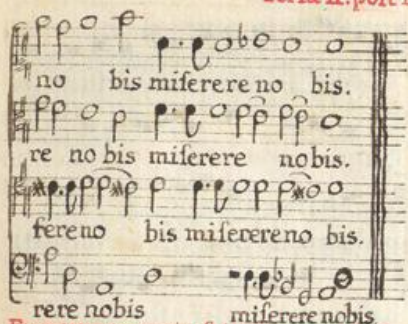 no bis miserere no bis.
re no bis miserere nobis.
sereno bis miserereno bis.
rere nobis miserere nobis